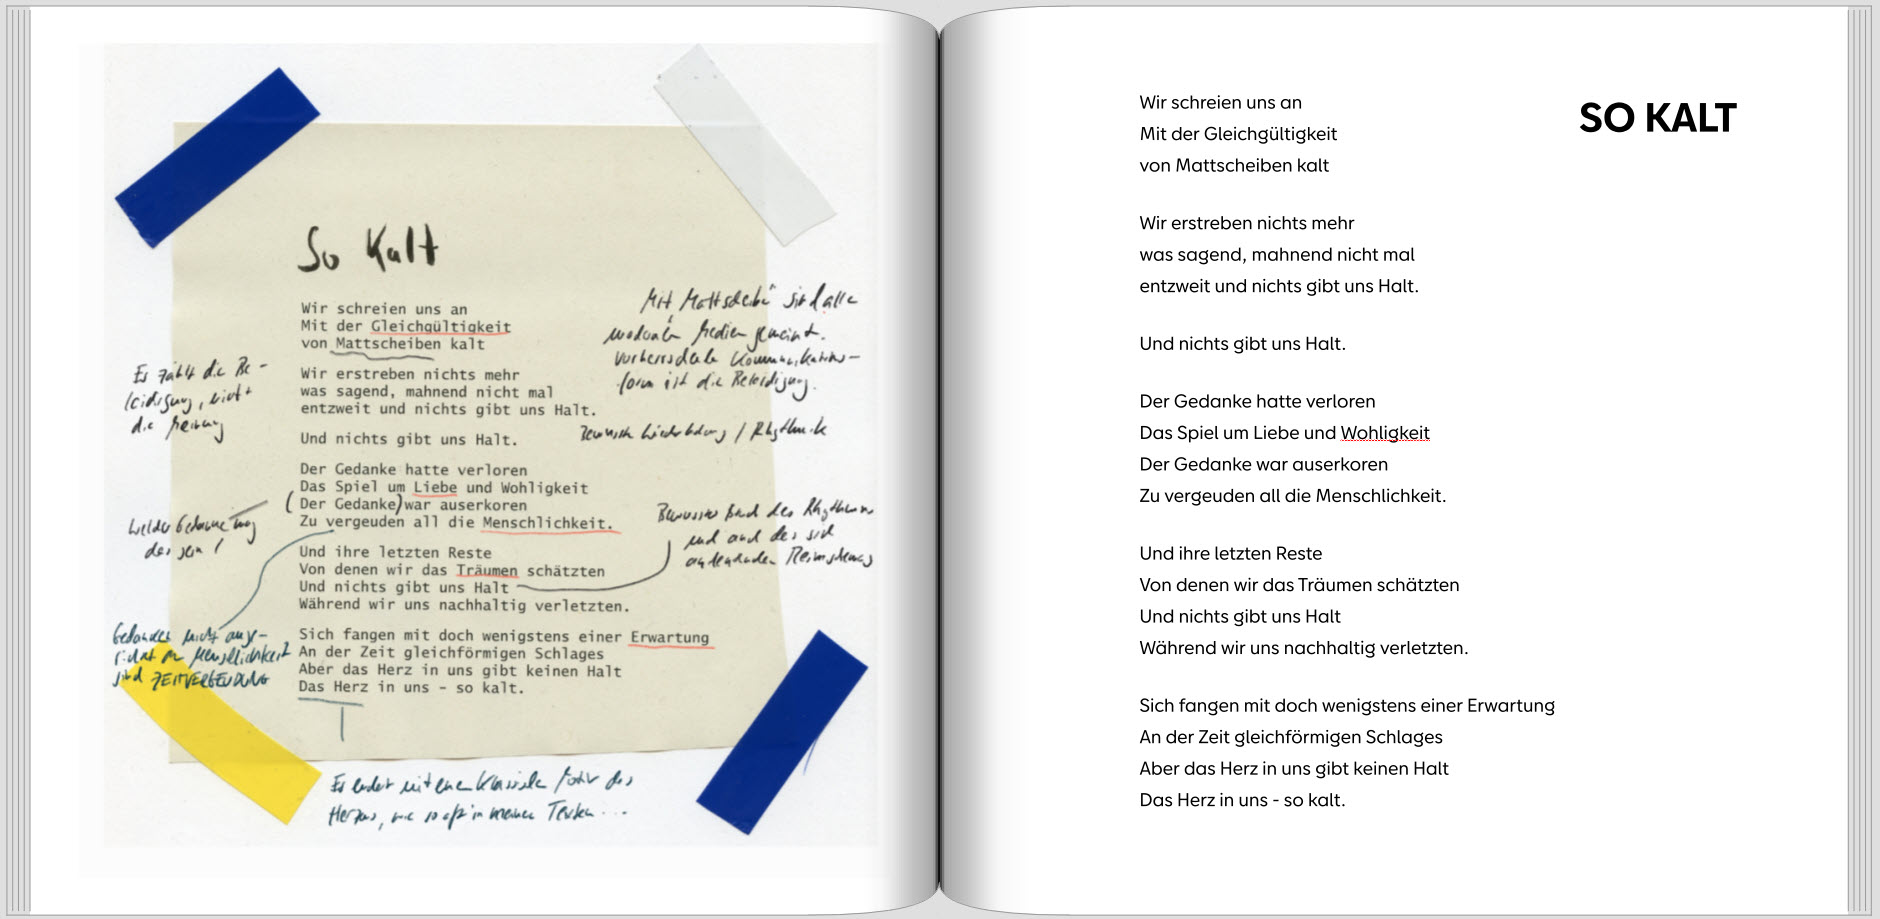 So Kalt
Wir schreien uns an
Mit der Gleichgültigkeit
von Mattscheiben kalt
Wir erstreben nichts mehr
was sagend, mahnend nicht mal
entzweit und nichts gibt uns Halt.
Und nichts gibt uns Halt.
Der Gedanke hatte verloren
Das Spiel um Liebe und Wohligkeit
(Der Gedanke) war auserkoren
Zu vergeuden all die Menschlichkeit.
Und ihre letzten Reste
Von denen wir das Träumen schätzten
Und nichts gibt uns Halt
Während wir uns nachhaltig verletzten.
Sich fangen mit doch wenigstens einer Erwartung
An der Zeit gleichförmigen Schlages
Aber das Herz in uns gibt keinen Halt
Das Herz in uns - so kalt.
Es zählt die Be-
leidigung, nicht
die Meinung
Mit Mattscheibe sind alle
modernen Medien gemeint.
Vorherrschende Kommunikations-
form ist die Beleidigung.
Bewusste Wiederholung / Rhythmik
Welcher Gedanke mag
das sein?
Bewusster Bruch des Rhythmus
und auch des sich
Reimschemas
Gedanken nicht ausge-
richtet an Menschlichkeit
sind ZEITVERGEUDUNG
Es endet mit einem Klassiker des
Herzens, wie so oft in meinen Texten...
SO KALT
Wir schreien uns an
Mit der Gleichgültigkeit
von Mattscheiben kalt
Wir erstreben nichts mehr
was sagend, mahnend nicht mal
entzweit und nichts gibt uns Halt.
Und nichts gibt uns Halt.
Der Gedanke hatte verloren
Das Spiel um Liebe und Wohligkeit
Der Gedanke war auserkoren
Zu vergeuden all die Menschlichkeit.
Und ihre letzten Reste
Von denen wir das Träumen schätzten
Und nichts gibt uns Halt
Während wir uns nachhaltig verletzten.
Sich fangen mit doch wenigstens einer Erwartung
An der Zeit gleichförmigen Schlages
Aber das Herz in uns gibt keinen Halt
Das Herz in uns - so kalt.